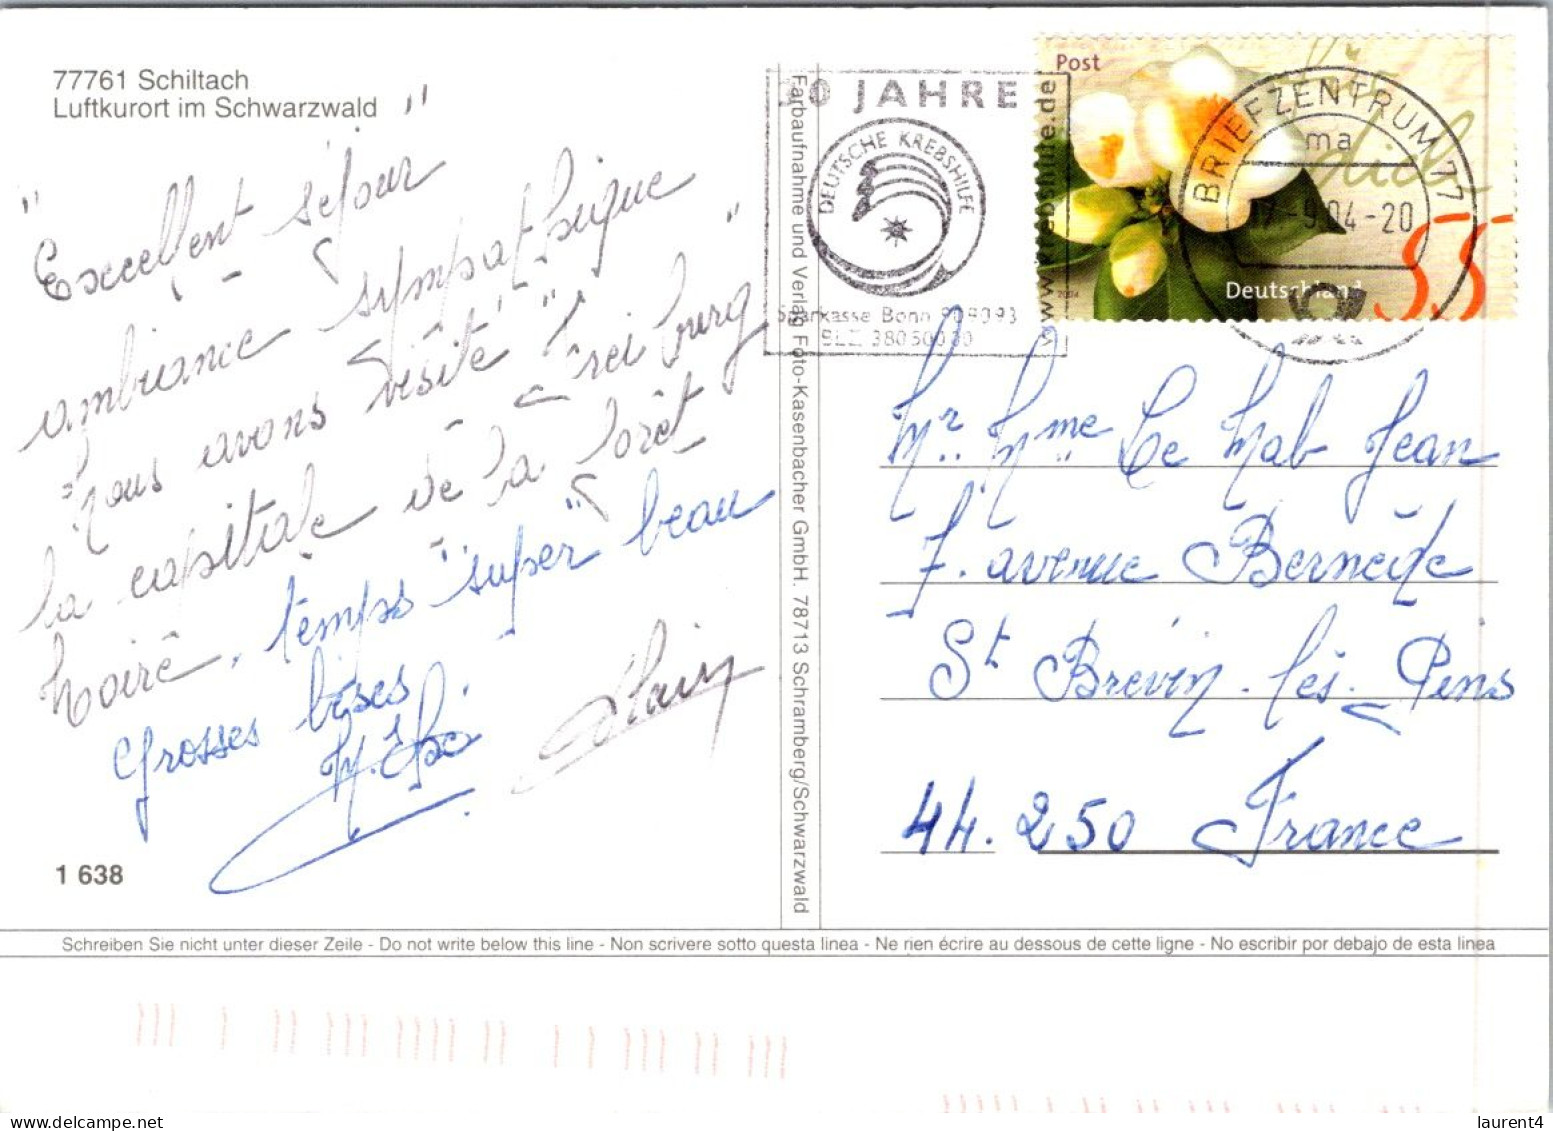 77761 Schiltach
Luftkurort im Schwarzwald
" Excellent séjour "
ambiance sympathique
nous avons visité " Freiburg "
la capitale de la forêt
Noire. temps "super" beau
Grosses bises
Alain
1 638
Farbaufnahme und Verlag Foto-Kasenbacher GmbH. 78713 Schramberg/Schwarzwald
JAHRE
DEUTSCHE KREBSHILFE
Sparkasse Bonn 909093
BLZ 38050000
www.krebshilfe.de
Post
Für dich
Deutschland
55
2004
BRIEFZENTRUM 77
ma
-9.04-20
Mr Mme Le Mab Jean
7. avenue Bernède
St Brévin. les. Pins
44.250 France
Schreiben Sie nicht unter dieser Zeile - Do not write below this line - Non scrivere sotto questa linea - Ne rien écrire au dessous de cette ligne - No escribir por debajo de esta linea
laurent4